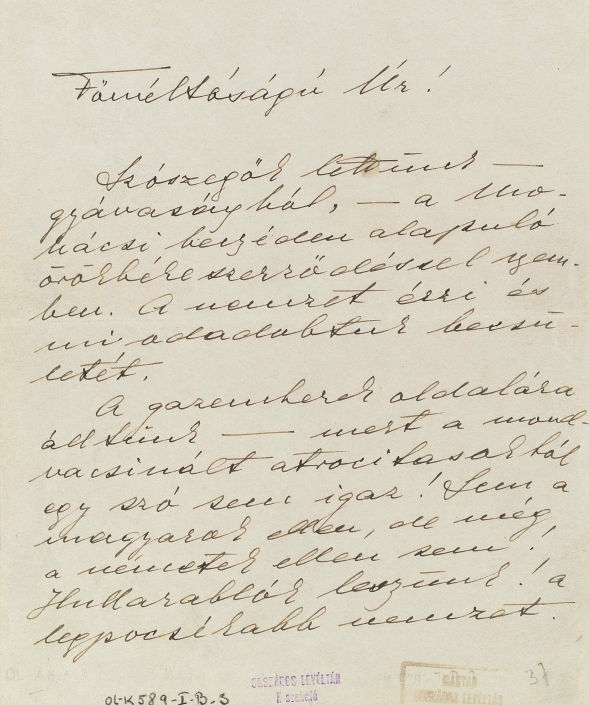 Főméltóságú Úr!
Szószegők lettünk —
gyávaságból, — a Mo-
hácsi beszéden alapuló
örökbékeszerződéssel szem-
ben. A nemzet érzi és
mi odadobtuk becsü-
letét.
A gazemberek oldalára
álltunk — mert a mond-
vacsinált atrocitasokból
egy szó sem igaz! Sem a
magyarok ellen, de még
a németek ellen sem!
Hullarablók leszünk! a
legpocsékabb nemzet.
37
OL-K589-I-B-S
ORSZÁGOS LEVÉLTÁR
K szekció
MAGYAR
ORSZÁGOS LEVÉLTÁR